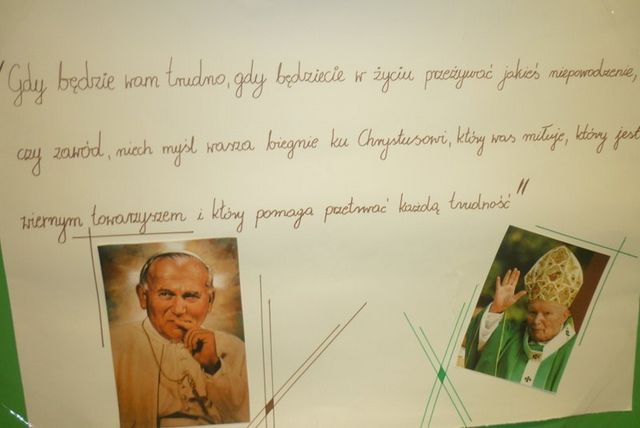 "Gdy będzie wam trudno, gdy będziecie w życiu przeżywać jakieś niepowodzenie,
czy zawód, niech myśl wasza biegnie ku Chrystusowi, który was miłuje, który jest
wiernym towarzyszem i który pomaga przetrwać każdą trudność"